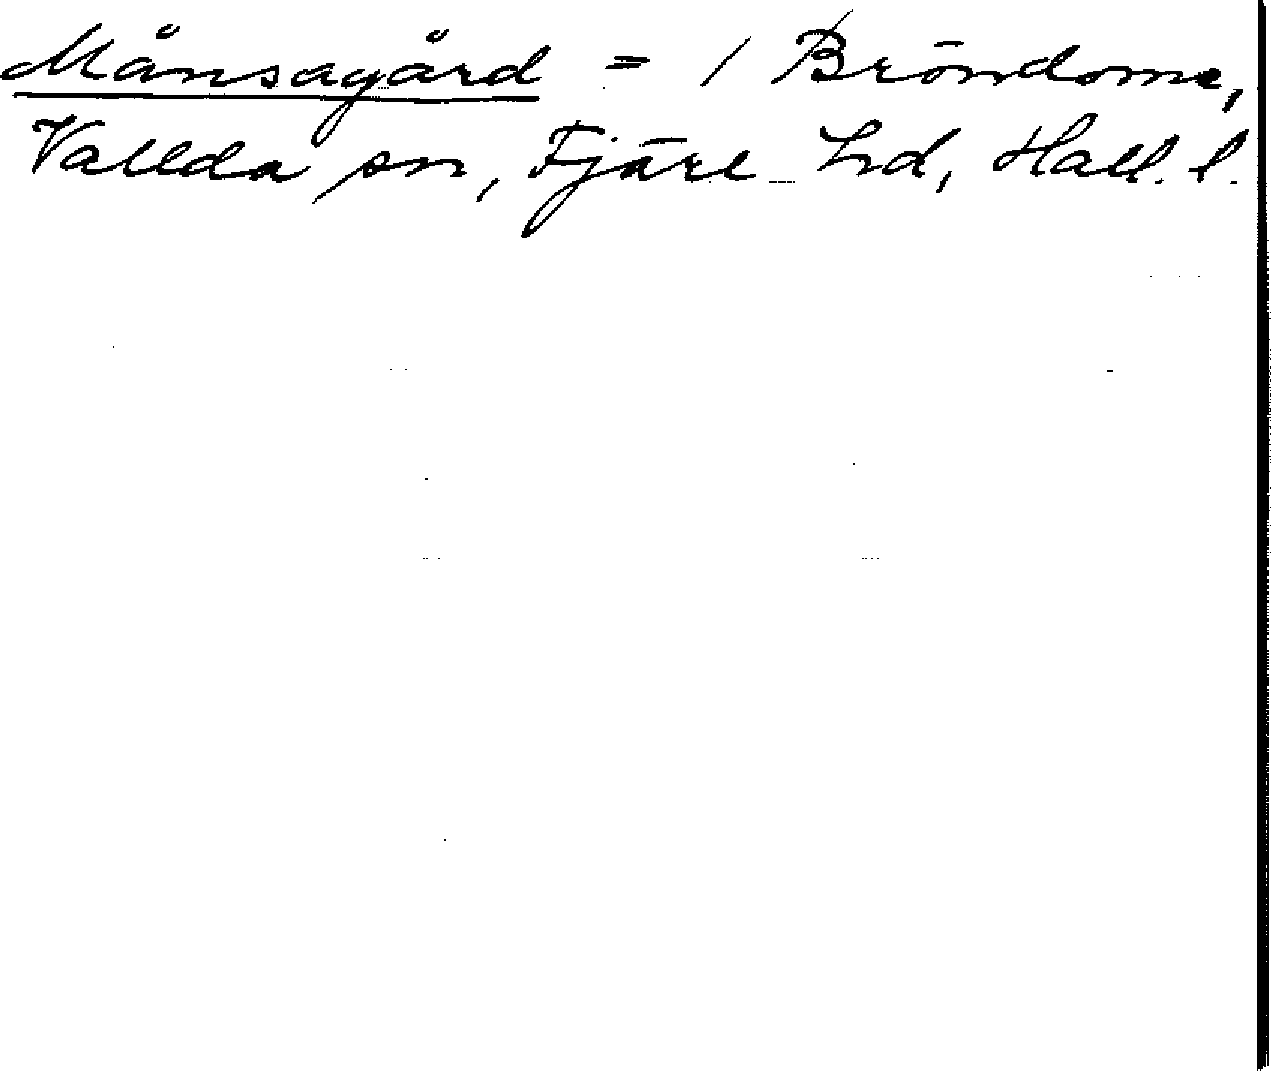 Månsagård = 1 Bröndome,
Vallda sn, Fjäre hd, Hall. l.